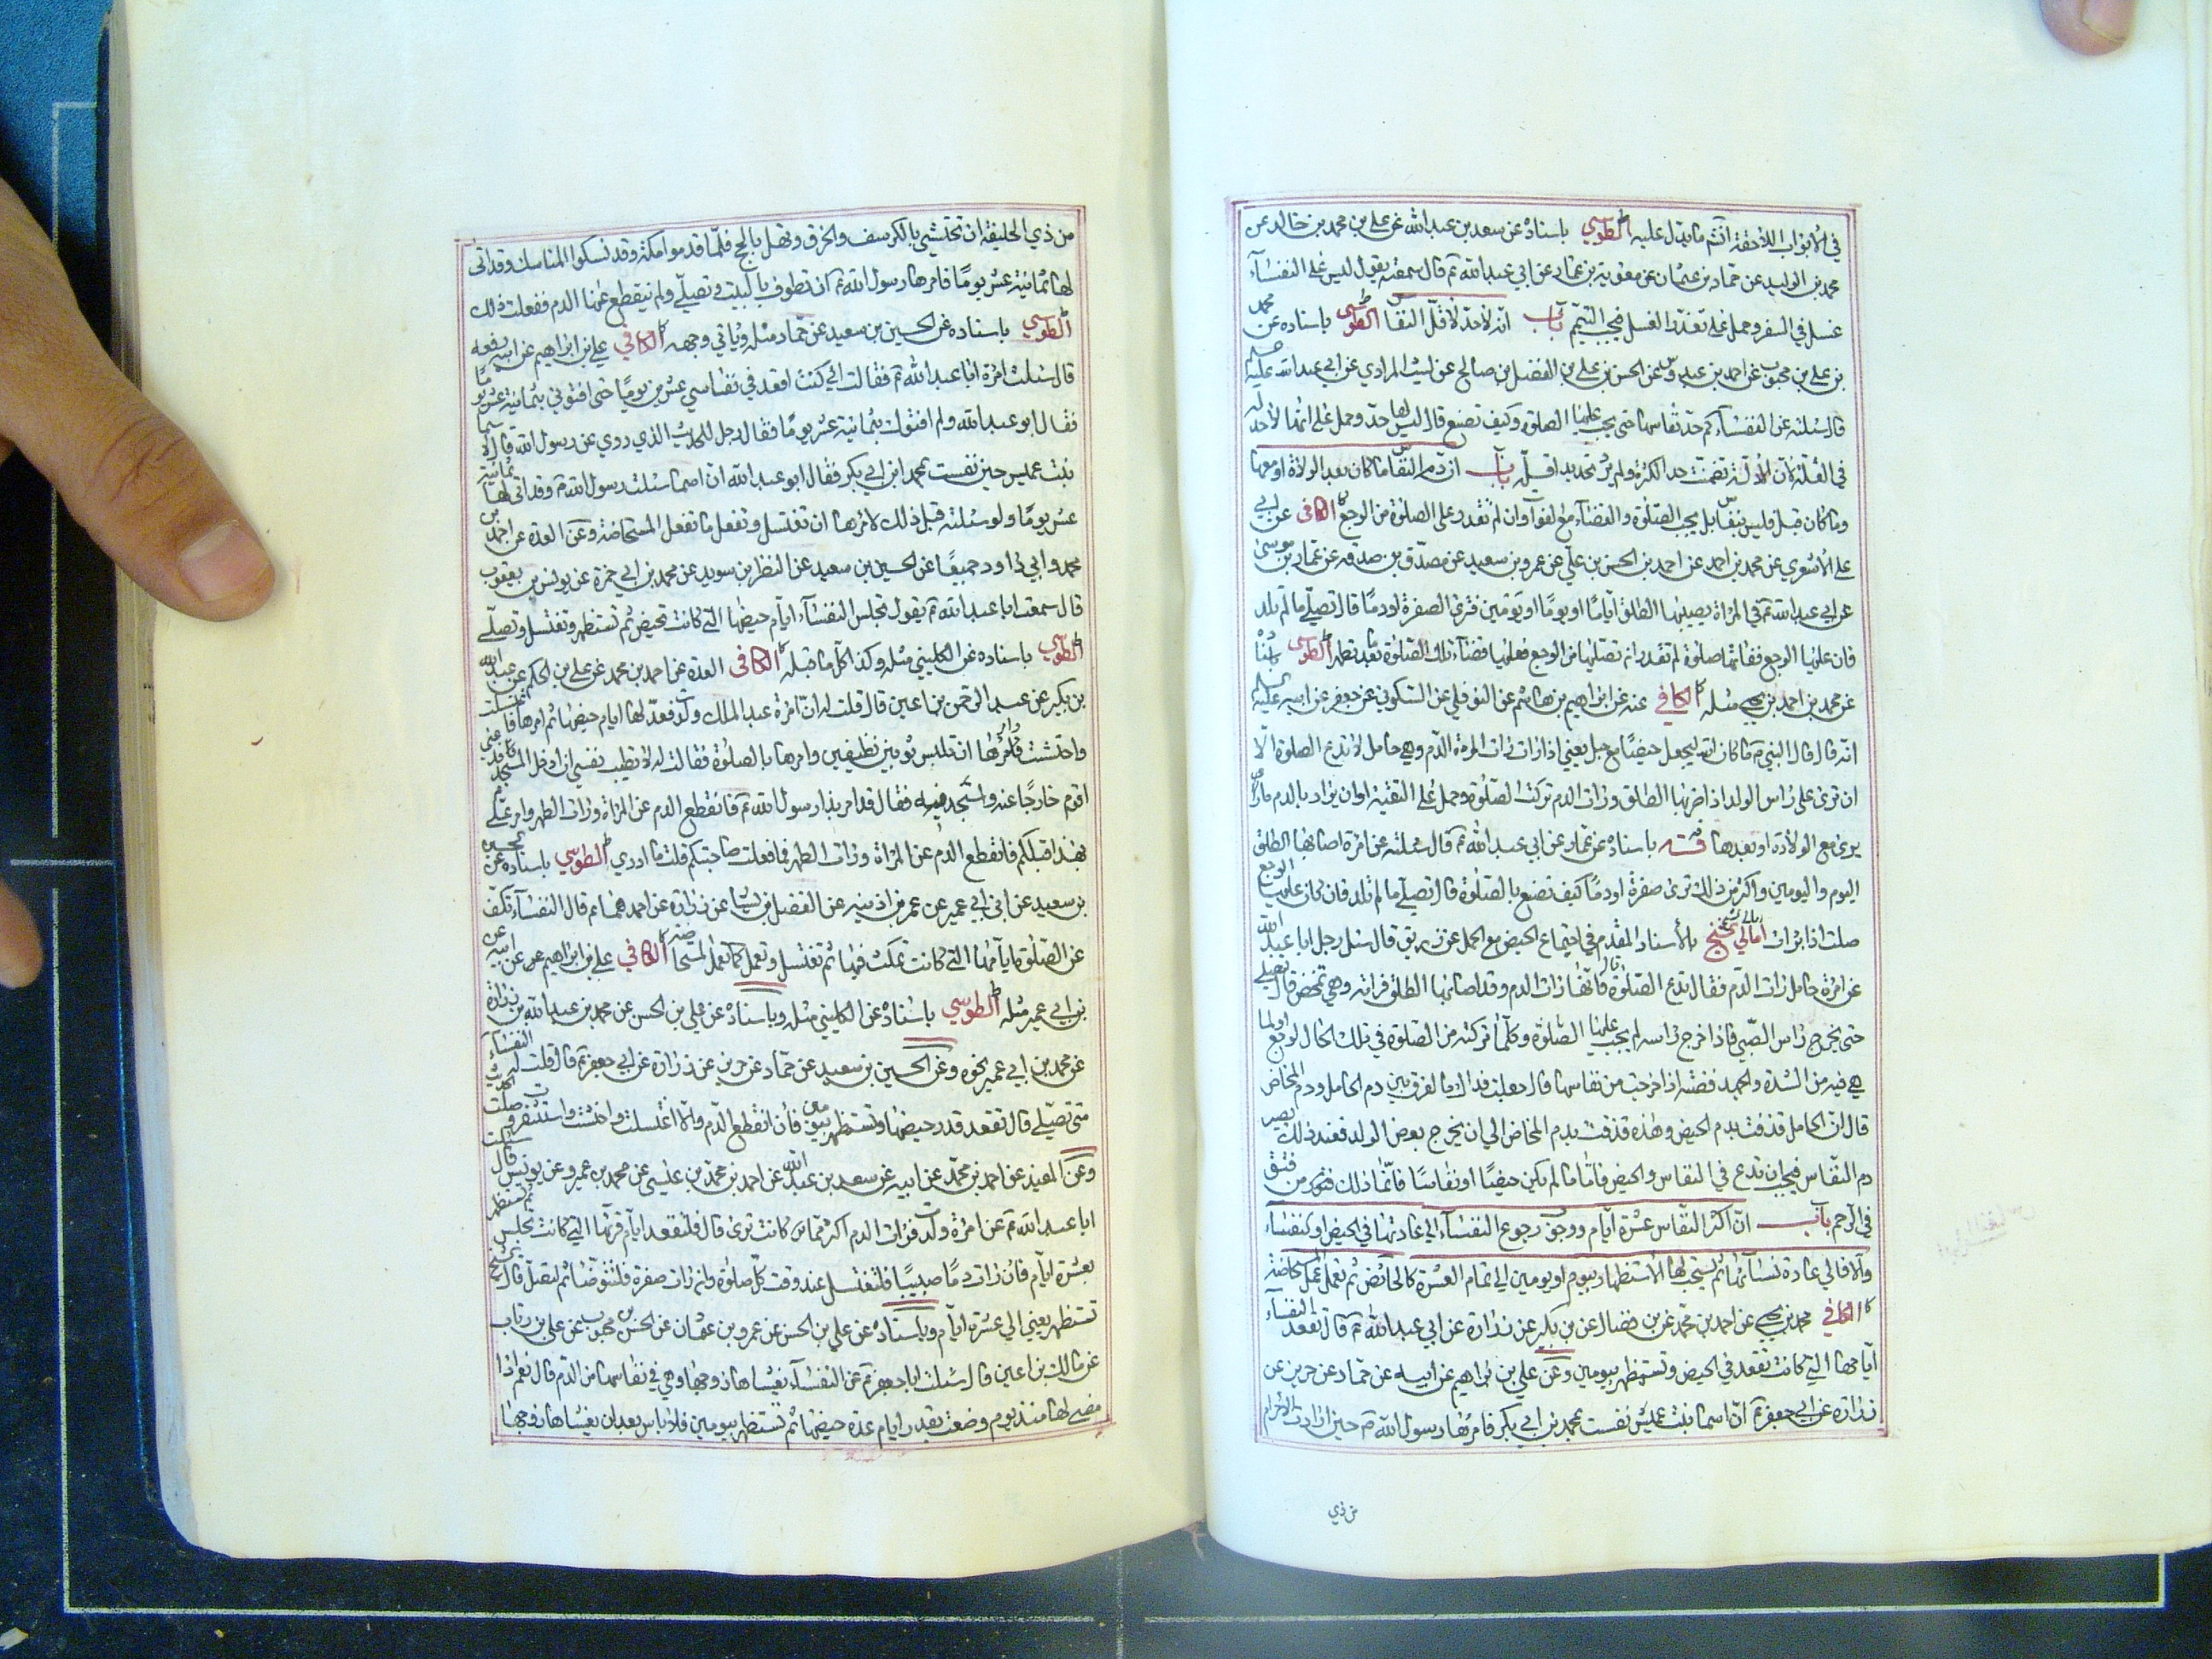 في الابواب اللاحقة انتم ما يدل عليه الطوسي باسناده عن سعد بن عبد الله عن علي بن محمد بن خالد عن
محمد بن الوليد عن حماد بن عثمان عن معوية بن عمار عن ابي عبد الله ع قال سمعته يقول ليس على النفساء
غسل في السفر وحمل على تعذر الغسل فيجب التيمم باب انه لا حد لاقل النفاس الطوسي باسناده عن محمد
بن علي بن محبوب عن احمد بن عبدوس عن الحسن بن علي عن المفضل بن صالح عن ليث المرادي عن ابي عبد الله عليه السلم
قال سئلته عن النفساء كم حد نفاسها حتى يجب عليها الصلوة وكيف تصنع قال ليس لها حد وحمل على انها لا حد له
في القلة لان الادلة تضمنت حد الكثرة ولم يرد تحديد اقله باب ان دم النفاس ما كان بعد الولادة او معها
وما كان قبل فليس بنفاس بل يجب الصلوة والقضاء مع الفوات وان لم تقدر على الصلوة من الوجع الكافي عن ابي
علي الاشعري عن محمد بن احمد عن احمد بن الحسن بن علي عن عمرو بن سعيد عن مصدق بن صدقه عن عمار بن موسى
عن ابي عبد الله ع في المراة يصيبها الطلق اياما او يوما او يومين فترى الصفرة او دما قال تصلي ما لم تلد
فان غلبها الوجع ففاتها صلوة لم تقدر ان تصليها من الوجع فعليها قضاء تلك الصلوة بعد ما تطهر الطوسي باسناده
عن محمد بن احمد بن يحيى مثله الكافي عنه عن ابراهيم بن هاشم عن النوفلي عن السكوني عن جعفر عن ابيه عليه السلم
انه قال قال النبي ص ما كان الله ليجعل حيضا مع حبل يعني اذا رات المراة الدم وهي حامل لا تدع الصلوة الا
ان ترى على راس الولد اذا ضربها الطلق ورات الدم تركت الصلوة وحمل على التقية او ان يراد بالدم ما
يرى مع الولادة او بعدها باسناده عن عمار عن ابي عبد الله ع قال سئلته عن امرة اصابها الطلق
اليوم واليومين واكثر من ذلك ترى صفرة او دما كيف تصنع بالصلوة قال تصلي ما لم تلد فان غلبها الوجع
صلت اذا برات امالي الشيخ بالاسناد المقدم في اجتماع الحيض مع الحمل عن رزيق قال سئل رجل ابا عبد الله
عن امرة حامل رات الدم فقال تدع الصلوة قال فانها رات الدم وقد اصابها الطلق فراته وهي تمخض قال تصلي
حتى يخرج راس الصبي فاذا خرج راسه لم يجب عليها الصلوة وكلما تركته من الصلوة في تلك الحال لوجع او لما
هي فيه من الشدة والجهد قضته اذا خرجت من نفاسها قال جعلت فداك ما الفرق بين دم الحامل ودم المخاض
قال ان الحامل قذفت بدم الحيض وهذه قذفت بدم المخاض الى ان يخرج بعض الولد فعند ذلك يصير
دم النفاس فيجب ان تدع في النفاس والحيض فاما ما لم يكن حيضا او نفاسا فانما ذلك من فتق
في الرحم باب ان اكثر النفاس عشرة ايام ووجوب رجوع النفساء الى عادتها في الحيض او النفساء
والا فالى عادة نسائها ثم يستحب لها الاستظهار بيوم او يومين الى تمام العشرة كالحائض ثم تعمل عمل المستحاضة
الكافي محمد بن يحيى عن احمد بن محمد عن بن فضال عن بن بكير عن زرارة عن ابي عبد الله ع قال تقعد النفساء
ايامها التي كانت تقعد في الحيض وتستظهر بيومين وعن علي بن ابراهيم عن ابيه عن حماد عن حريز عن
زرارة عن ابي جعفر ع ان اسما بنت عميس نفست بمحمد بن ابي بكر فامرها رسول الله ص حين ارادت الاحرام
من ذي
من ذي الحليفة ان تحتشي بالكرسف والخرق وتهل بالحج فلما قدموا مكة وقد نسكوا المناسك وقد اتى
لها ثمانية عشر يوما فامرها رسول الله ص ان تطوف بالبيت وتصلي ولم ينقطع عنها الدم ففعلت ذلك
الطوسي باسناده عن الحسين بن سعيد عن حماد مثله وياتي وجهه الكافي علي بن ابراهيم عن ابيه رفعه
قال سئلت امرة ابا عبد الله ع فقالت اني كنت اقعد في نفاسي عشرين يوما حتى افتوني بثمانية عشر يوما
فقال ابو عبد الله ولم افتوك بثمانية عشر يوما فقال رجل للحديث الذي روي عن رسول الله ص قال لاسما
بنت عميس حين نفست بمحمد ابن ابي بكر فقال ابو عبد الله ان اسما سئلت رسول الله ص وقد اتى لها ثمانية
عشر يوما ولو سئلته قبل ذلك لامرها ان تغتسل وتفعل ما تفعل المستحاضة وعن العدة عن احمد بن
محمد وابي داود جميعا عن الحسين بن سعيد عن النظر بن سويد عن محمد بن ابي حمزة عن يونس بن يعقوب
قال سمعت ابا عبد الله ع يقول تجلس النفساء ايام حيضها التي كانت تحيض ثم تستظهر وتغتسل وتصلي
الطوسي باسناده عن الكليني مثله وكذا كل ما قبله الكافي العدة عن احمد بن محمد عن علي بن الحكم عن عبد الله
بن بكير عن عبد الرحمن بن اعين قال قلت له ان امرة عبد الملك ولدت فعد لها ايام حيضها ثم امرها فاغتسلت
واحتشت وامرها ان تلبس ثوبين نظيفين وامرها بالصلوة فقالت له لا تطيب نفسي ان ادخل المسجد فدعني
اقوم خارجا عنه واسجد فيه فقال قد امر بذا رسول الله ص فانقطع الدم عن المراة ورات الطهر وامر علي
بهذا قبلكم فانقطع الدم عن المراة ورات الطهر فما فعلت صاحبتكم قلت ما ادري الطوسي باسناده عن الحسين
بن سعيد عن ابن ابي عمير عن عمر بن اذينه عن الفضيل بن يسار عن زرارة عن احدهما ع قال النفساء تكف
عن الصلوة ايامها التي كانت تمكث فيها ثم تغتسل وتعمل كما تعمل المستحاضة الكافي علي بن ابراهيم عن ابيه عن
بن ابي عمير مثله الطوسي باسناده عن الكليني مثله وباسناده عن علي بن الحسن عن محمد بن عبد الله بن زرارة
عن محمد بن ابي عمير نحوه وعن الحسين بن سعيد عن حماد عن حريز عن زرارة عن ابي جعفر ع قال قلت له النفساء
متى تصلي قال تقعد قدر حيضها وتستظهر بيومين فان انقطع الدم والا اغتسلت واحتشت واستثفرت وصلت الحديث
وعن المفيد عن احمد بن محمد عن ابيه عن سعد بن عبد الله عن احمد بن محمد بن عيسى عن محمد بن عمرو عن يونس قال سئلت
ابا عبد الله ع عن امرة ولدت فرات الدم اكثر مما كانت ترى قال فلتقعد ايام قرئها التي كانت تجلس ثم تستظهر
بعشرة ايام فان رات دما صبيبا فلتغتسل عند وقت كل صلوة وان رات صفرة فلتتوضا ثم لتصل قال الشيخ
تستظهر يعني الى عشرة ايام وباسناده عن علي بن الحسن عن عمرو بن عثمان عن الحسن بن محبوب عن علي بن رئاب
عن مالك بن اعين قال سئلت ابا جعفر ع عن النفساء يغشاها زوجها وهي في نفاسها من الدم قال نعم اذا
مضى لها منذ يوم وضعت بقدر ايام عدة حيضها ثم تستظهر بيومين فلا باس بعد ان يغشاها زوجها